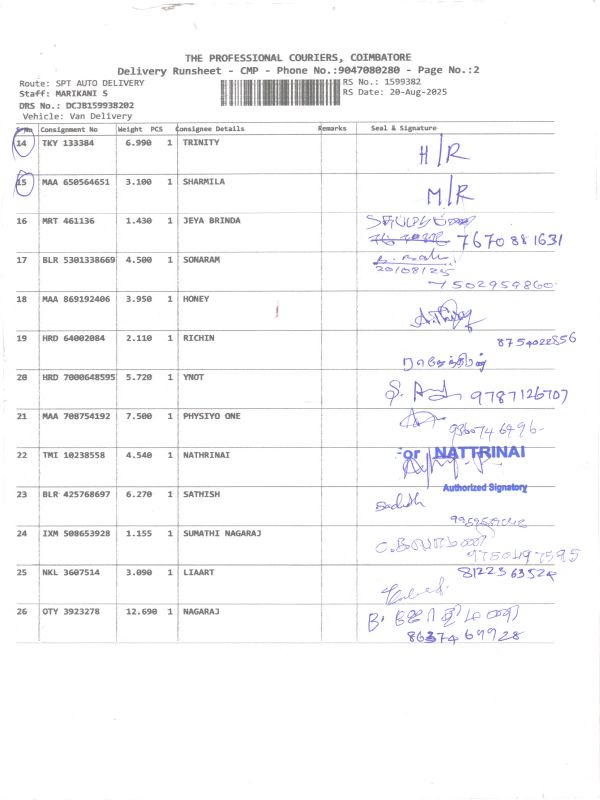 THE PROFESSIONAL COURIERS, COIMBATORE
Delivery Runsheet - CMP - Phone No.:9047080280 - Page No.:2
Route: SPT AUTO DELIVERY RS No.: 1599382
Staff: MARIKANI S RS Date: 20-Aug-2025
DRS No.: DCJB159938202
Vehicle: Van Delivery
SrNo Consignment No Weight PCS Consignee Details Remarks Seal & Signature
14 TKY 133384 6.990 1 TRINITY H/R
15 MAA 650564651 3.100 1 SHARMILA M/R
16 MRT 461136 1.430 1 JEYA BRINDA 7670881631
17 BLR 5301338669 4.500 1 SONARAM
20/08/25
7502959860
18 MAA 869192406 3.950 1 HONEY
19 HRD 64002084 2.110 1 RICHIN 8754022856
20 HRD 7000648595 5.720 1 YNOT 9787126707
21 MAA 708754192 7.500 1 PHYSIYO ONE
22 TMI 10238558 4.540 1 NATHRINAI
For NATTRINAI
Authorized Signatory
23 BLR 425768697 6.270 1 SATHISH
24 IXM 508653928 1.155 1 SUMATHI NAGARAJ
9750497595
25 NKL 3607514 3.090 1 LIAART 8122363524
26 OTY 3923278 12.690 1 NAGARAJ
8637469928